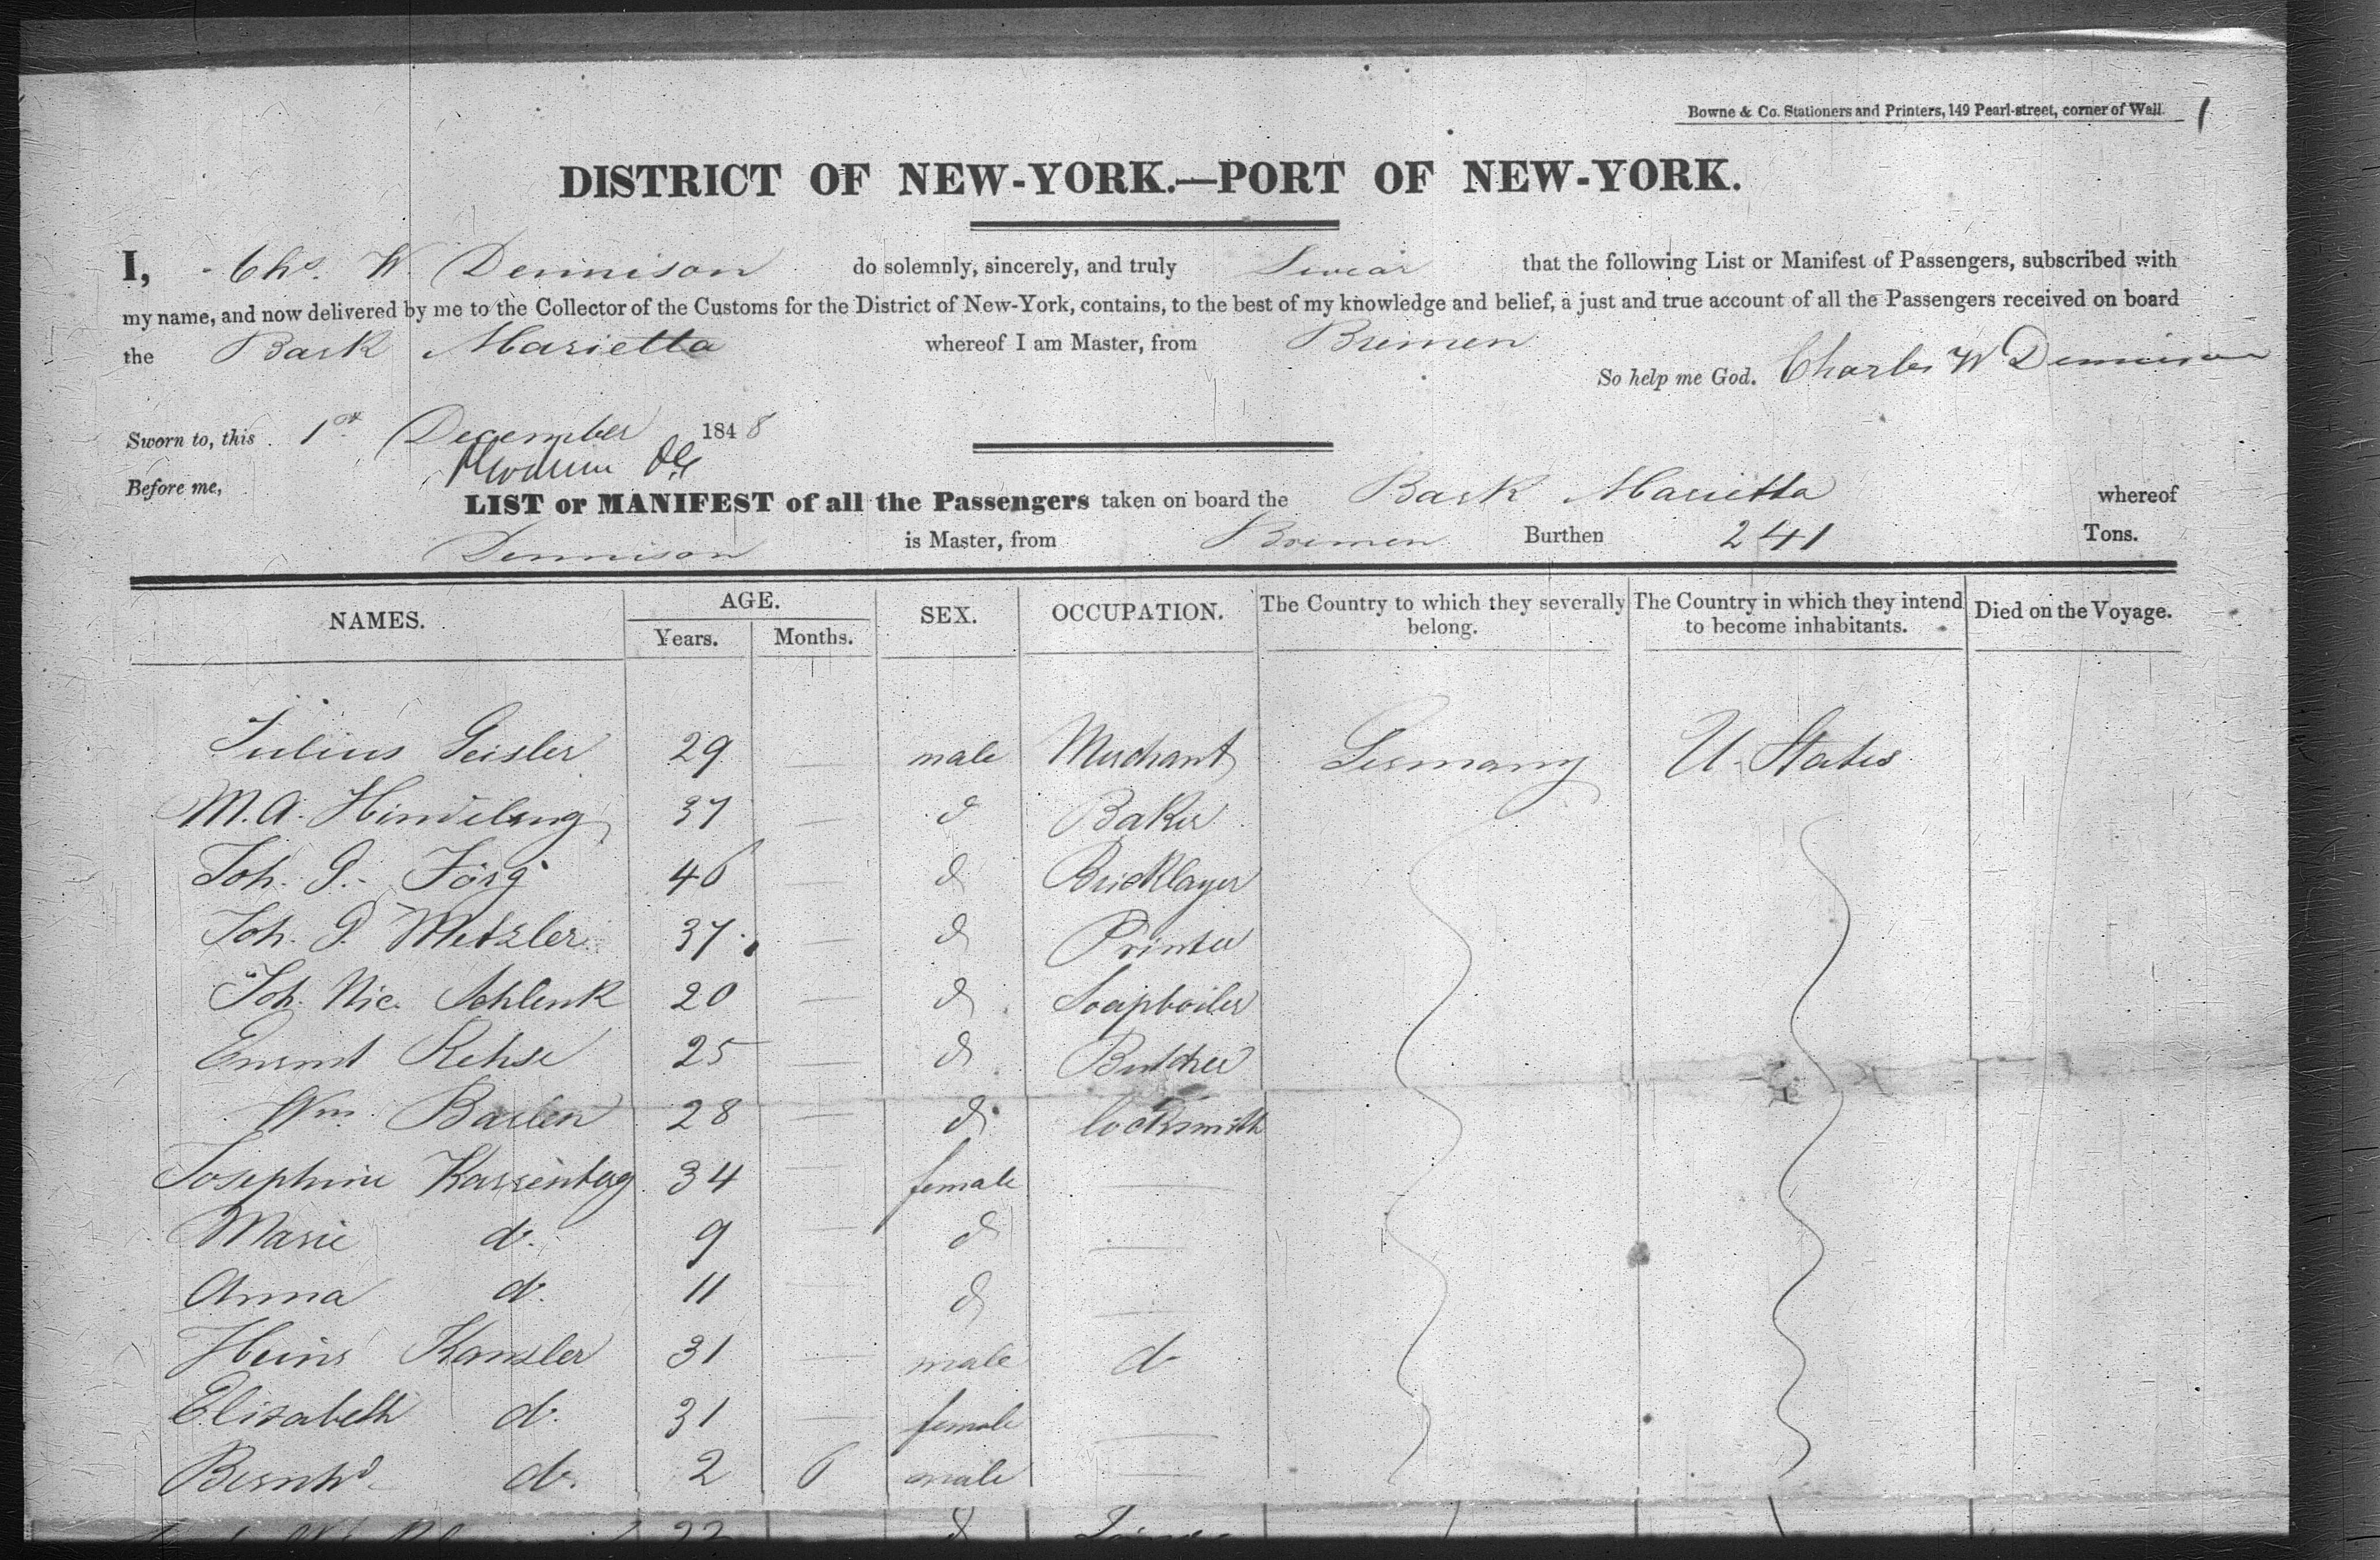 Bowne & Co. Stationers and Printers, 149 Pearl-street, corner of Wall. 1
DISTRICT OF NEW-YORK.—PORT OF NEW-YORK.
I, Chs. W. Dennison do solemnly, sincerely, and truly Swear that the following List or Manifest of Passengers, subscribed with
my name, and now delivered by me to the Collector of the Customs for the District of New-York, contains, to the best of my knowledge and belief, a just and true account of all the Passengers received on board
the Bark Marietta whereof I am Master, from Bremen
So help me God. Charles W Dennison
Sworn to, this 1st December 1848
Before me,
LIST or MANIFEST of all the Passengers taken on board the Bark Marietta whereof
Dennison is Master, from Bremen Burthen 241 Tons.
NAMES. AGE. SEX. OCCUPATION. The Country to which they severally belong. The Country in which they intend to become inhabitants. Died on the Voyage.
Years. Months.
Julius Geisler 29 — male Merchant Germany U. States
M.A. Hindelang 37 — d Baker
Joh. G. Jörg 46 — d Bricklayer
Joh. G. Metzler 37 — d Printer
Joh. Nic. Schlenk 20 — d Soapboiler
Rehse 25 — d Butcher
Wm. Barlen 28 — d locksmith
Josephine 34 — female —
Marie do. 9 — d —
Anna do. 11 — d —
Heinr Kanzler 31 — male do
Elizabeth do. 31 — female —
Bernhd do. 2 6 male —
22 d